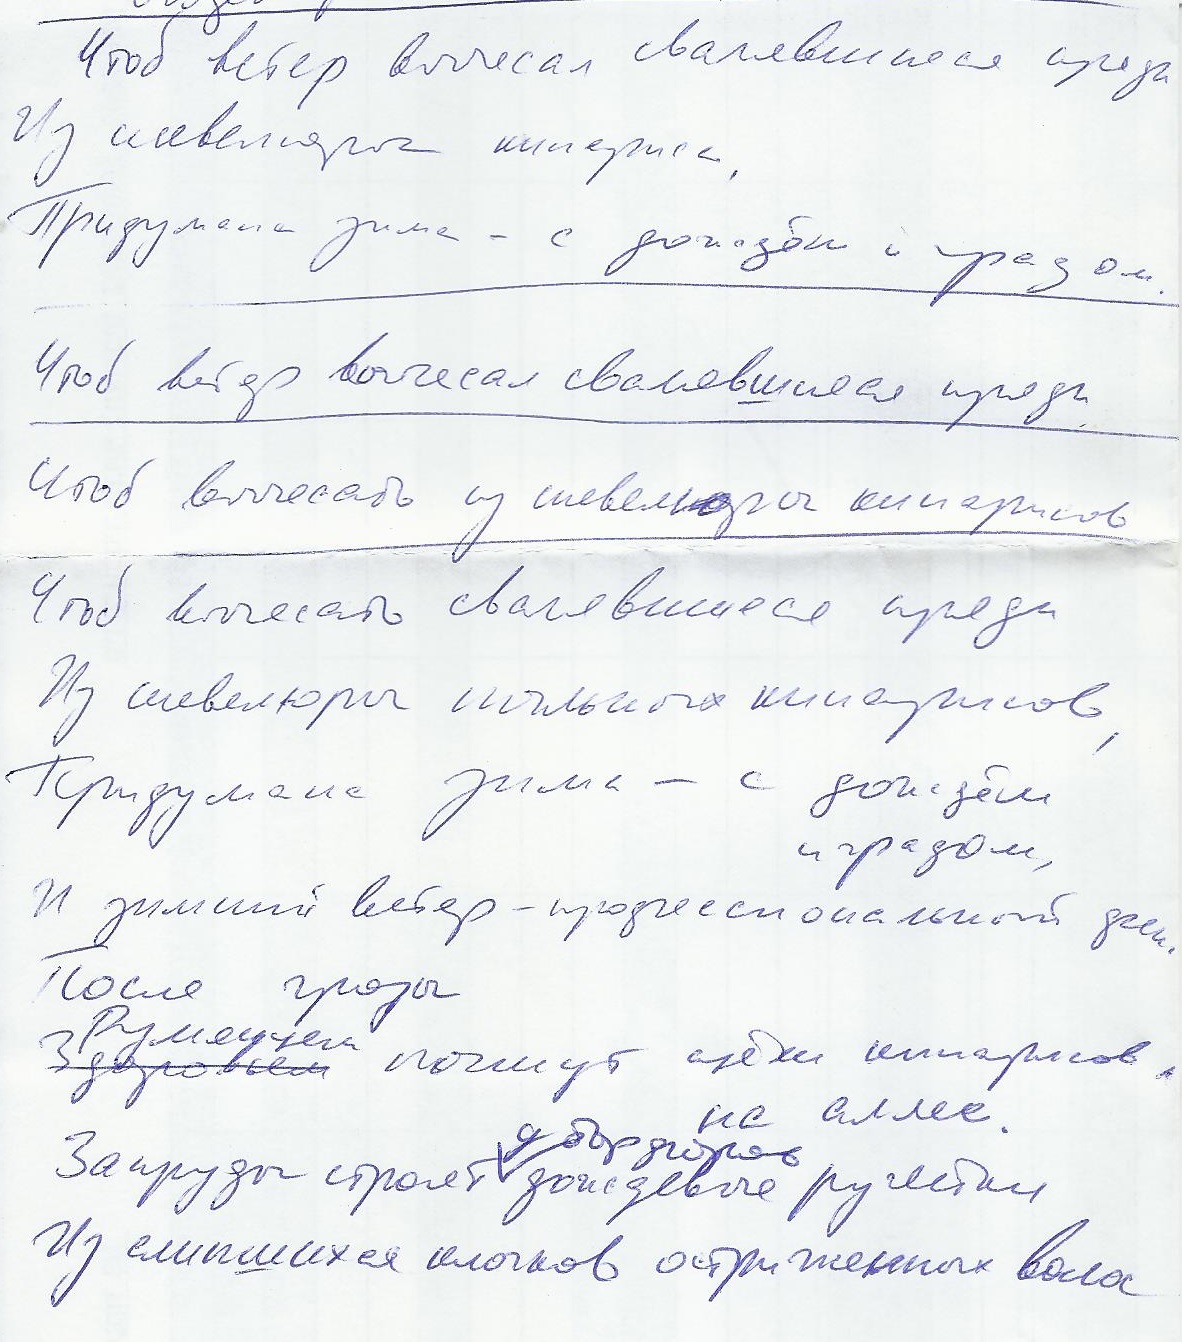 Чтоб ветер вычесал свалявшиеся пряди
Из шевелюры кипариса,
Придумана зима – с дождём и градом.
Чтоб ветер вычесал свалявшиеся пряди
Чтоб вычесать из шевелюры кипарисов
Чтоб вычесать свалявшиеся пряди
Из шевелюры пыльных кипарисов,
Придумана зима – с дождём
и градом,
И зимний ветер – профессиональный
После грозы
Румянцем
Здоровьем пышут щёки кипарисов.
на аллее.
у бордюров
Запруды строят дождевые ручейки
Из слипшихся клочков остриженных волос